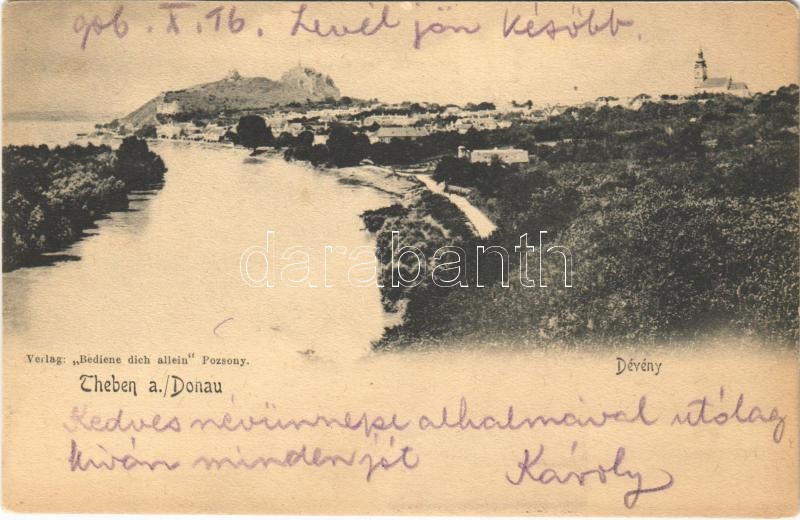 906. X. 16. Levél jön később.
darabanth
Verlag: „Bediene dich allein" Pozsony.
Dévény
Theben a./Donau
Kedves névünnepe alkalmával utólag
kíván minden jót Károly